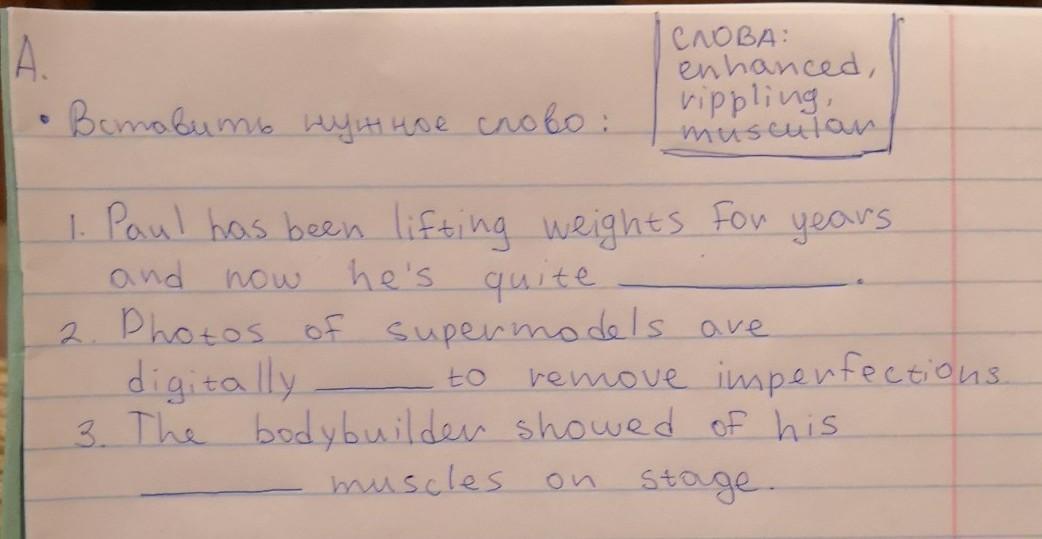 А.
СЛОВА:
enhanced,
rippling,
muscular
• Вставить нужное слово:
1. Paul has been lifting weights for years
and now he's quite ________.
2. Photos of supermodels are
digitally ____ to remove imperfections.
3. The bodybuilder showed of his
______ muscles on stage.